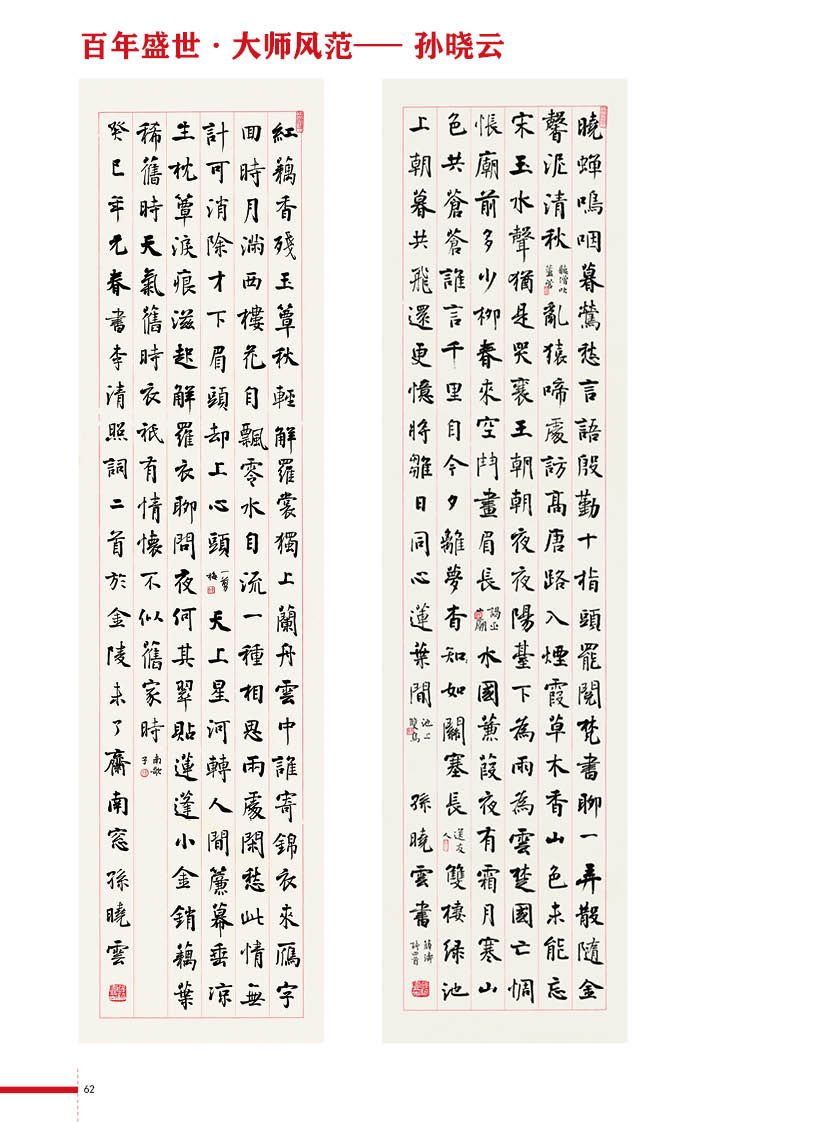 百年盛世·大师风范—— 孙晓云
紅藕香殘玉簟秋輕解羅裳獨上蘭舟雲中誰寄錦衣來鴈字
回時月滿西樓花自飄零水自流一種相思兩處閑愁此情無
計可消除才下眉頭却上心頭 一剪梅 天上星河轉人間簾幕垂涼
生枕簟淚痕滋起解羅衣聊問夜何其翠貼蓮蓬小金銷藕葉
稀舊時天氣舊時衣祇有情懷不似舊家時 南歌子
癸巳年元春書李清照詞二首於金陵未了齋南窓孫曉雲
曉蟬嗚咽暮鶯愁言語殷勤十指頭罷閱梵書聊一弄散隨金
磬泥清秋 聽僧吹蘆管 亂猿啼處訪高唐路入煙霞草木香山色未能忘
宋玉水聲猶是哭襄王朝朝夜夜陽臺下為雨為雲楚國亡惆
悵廟前多少柳春來空鬥畫眉長 謁巫山廟 水國蒹葭夜有霜月寒山
色共蒼蒼誰言千里自今夕離夢杳知如關塞長 送友人 雙棲綠池
上朝暮共飛還更憶將雛日同心蓮葉間 池上雙鳥 孫曉雲書 薛濤詩四首
62